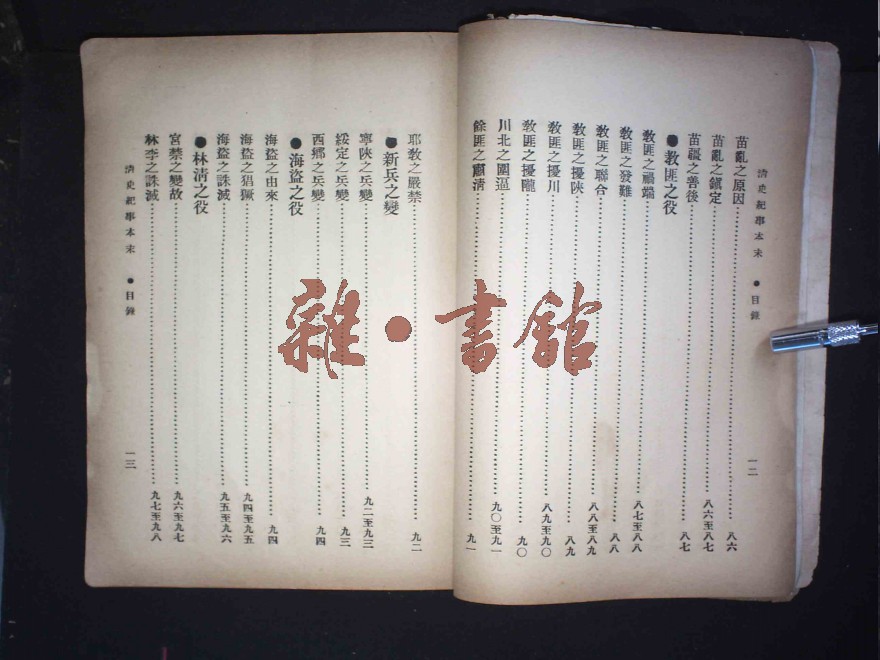 清史紀事本末 ●目錄 一二
苗亂之原因 八六
苗亂之鎮定 八六至八七
苗疆之善後 八七
●教匪之役
教匪之禍端 八七至八八
教匪之發難 八八
教匪之聯合 八八至八九
教匪之擾陝 八九
教匪之擾川 八九至九〇
教匪之擾隴 九〇
川北之圍逼 九〇至九一
餘匪之肅清 九一
耶教之嚴禁 九二
●新兵之變
寧陝之兵變 九二至九三
綏定之兵變 九三
西鄉之兵變 九四
●海盜之役
海盜之由來 九四
海盜之猖獗 九四至九五
海盜之誅滅 九五至九六
●林清之役
宮禁之變故 九六至九七
林李之誅滅 九七至九八
清史紀事本末 ●目錄 一三
雜●書館